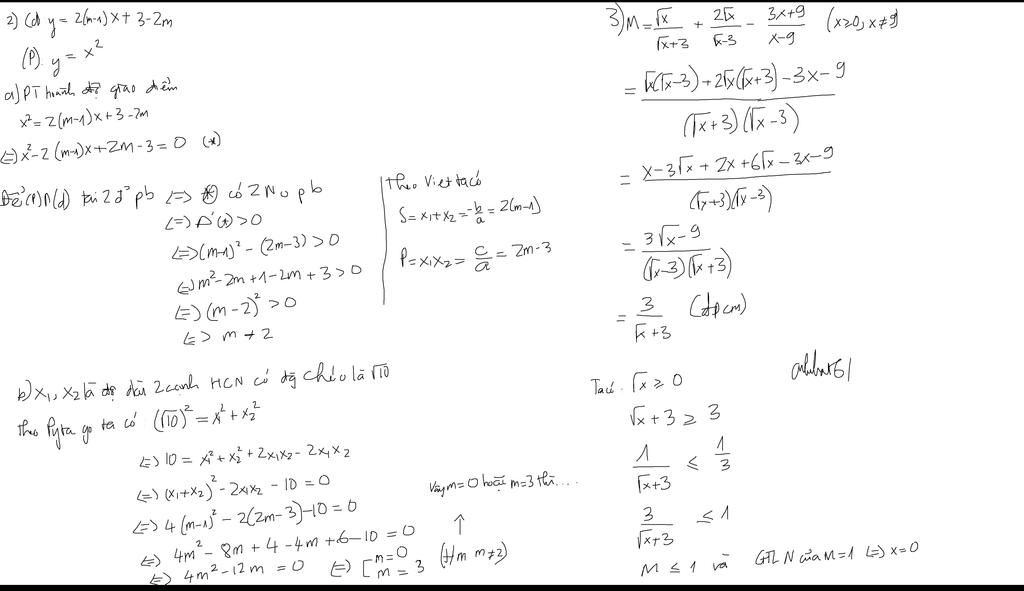 2) (d) y = 2(m-1)x + 3-2m
(P). y = x²
a) PT hoành độ giao điểm
x² = 2(m-1)x + 3-2m
<=> x² - 2(m-1)x + 2m - 3 = 0 (*)
Để (P)∩(d) tại 2 đ' pb <=> (*) có 2 No pb
<=> Δ'(*) > 0
<=> (m-1)² - (2m-3) > 0
<=> m² - 2m + 1 - 2m + 3 > 0
<=> (m-2)² > 0
<=> m ≠ 2
theo Viet ta có
S = x₁+x₂ = -b/a = 2(m-1)
P = x₁x₂ = c/a = 2m-3
b) x₁, x₂ là độ dài 2 cạnh HCN có đg chéo là √10
theo Pyta go ta có (√10)² = x₁² + x₂²
<=> 10 = x₁² + x₂² + 2x₁x₂ - 2x₁x₂
<=> (x₁+x₂)² - 2x₁x₂ - 10 = 0
<=> 4(m-1)² - 2(2m-3) - 10 = 0
<=> 4m² - 8m + 4 - 4m + 6 - 10 = 0
<=> 4m² - 12m = 0 <=> [m = 0 m = 3 (t/m m≠2)
↑
Vậy m=0 hoặc m=3 thì....
3) M = √x/(√x+3) + 2√x/(√x-3) - (3x+9)/(x-9) (x≥0, x≠9)
= (√x(√x-3) + 2√x(√x+3) - 3x - 9)/((√x+3)(√x-3))
= (x - 3√x + 2x + 6√x - 3x - 9)/((√x+3)(√x-3))
= (3√x - 9)/((√x-3)(√x+3))
= 3/(√x+3) (đpcm)
Ta có. √x ≥ 0
√x + 3 ≥ 3
1/(√x+3) ≤ 1/3
3/(√x+3) ≤ 1
M ≤ 1 và GTLN của M = 1 <=> x = 0